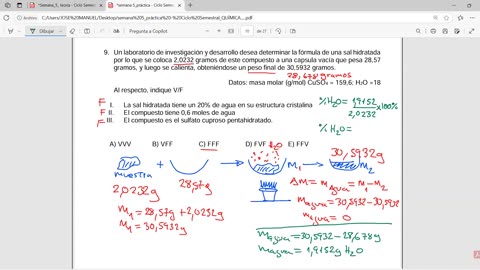 *Semana_5_teoria - Ciclo Semest
*semana 5_práctica - Ciclo Semes
Archivo
C:/Users/JOSE%20MANUEL/Desktop/semana%205_práctica-%20-%20CicloSemestral_QUÍMICA_...pdf
Dibujar
Pregunta a Copilot
9. Un laboratorio de investigación y desarrollo desea determinar la fórmula de una sal hidratada
por lo que se coloca 2,0232 gramos de este compuesto a una capsula vacía que pesa 28.57
gramos, y luego se calienta, obteniéndose un peso final de 30,5932 gramos.
28,678 gramos
Datos: masa molar (g/mol) CuSO₄ = 159,6; H₂O =18
Al respecto, indique V/F
F I. La sal hidratada tiene un 20% de agua en su estructura cristalina
F II. El compuesto tiene 0,6 moles de agua
F III. El compuesto es el sulfato cuproso pentahidratado.
%H₂O = 1,9152 / 2,0232 x100%
%H₂O =
A) VVV B) VFF C) FFF D) FVF E) FFV
H₂O
30,5932g
muestra
2,0232g
28,57g
m₁
m₂
M₁ = 28,57g + 2,0232g
M₁ = 30,5932g
ΔM = m agua = m₁ - m₂
m agua = 30,5932 - 30,5932
m agua = 0
m agua = 30,5932 - 28,678g
m agua = 1,9152g H₂O